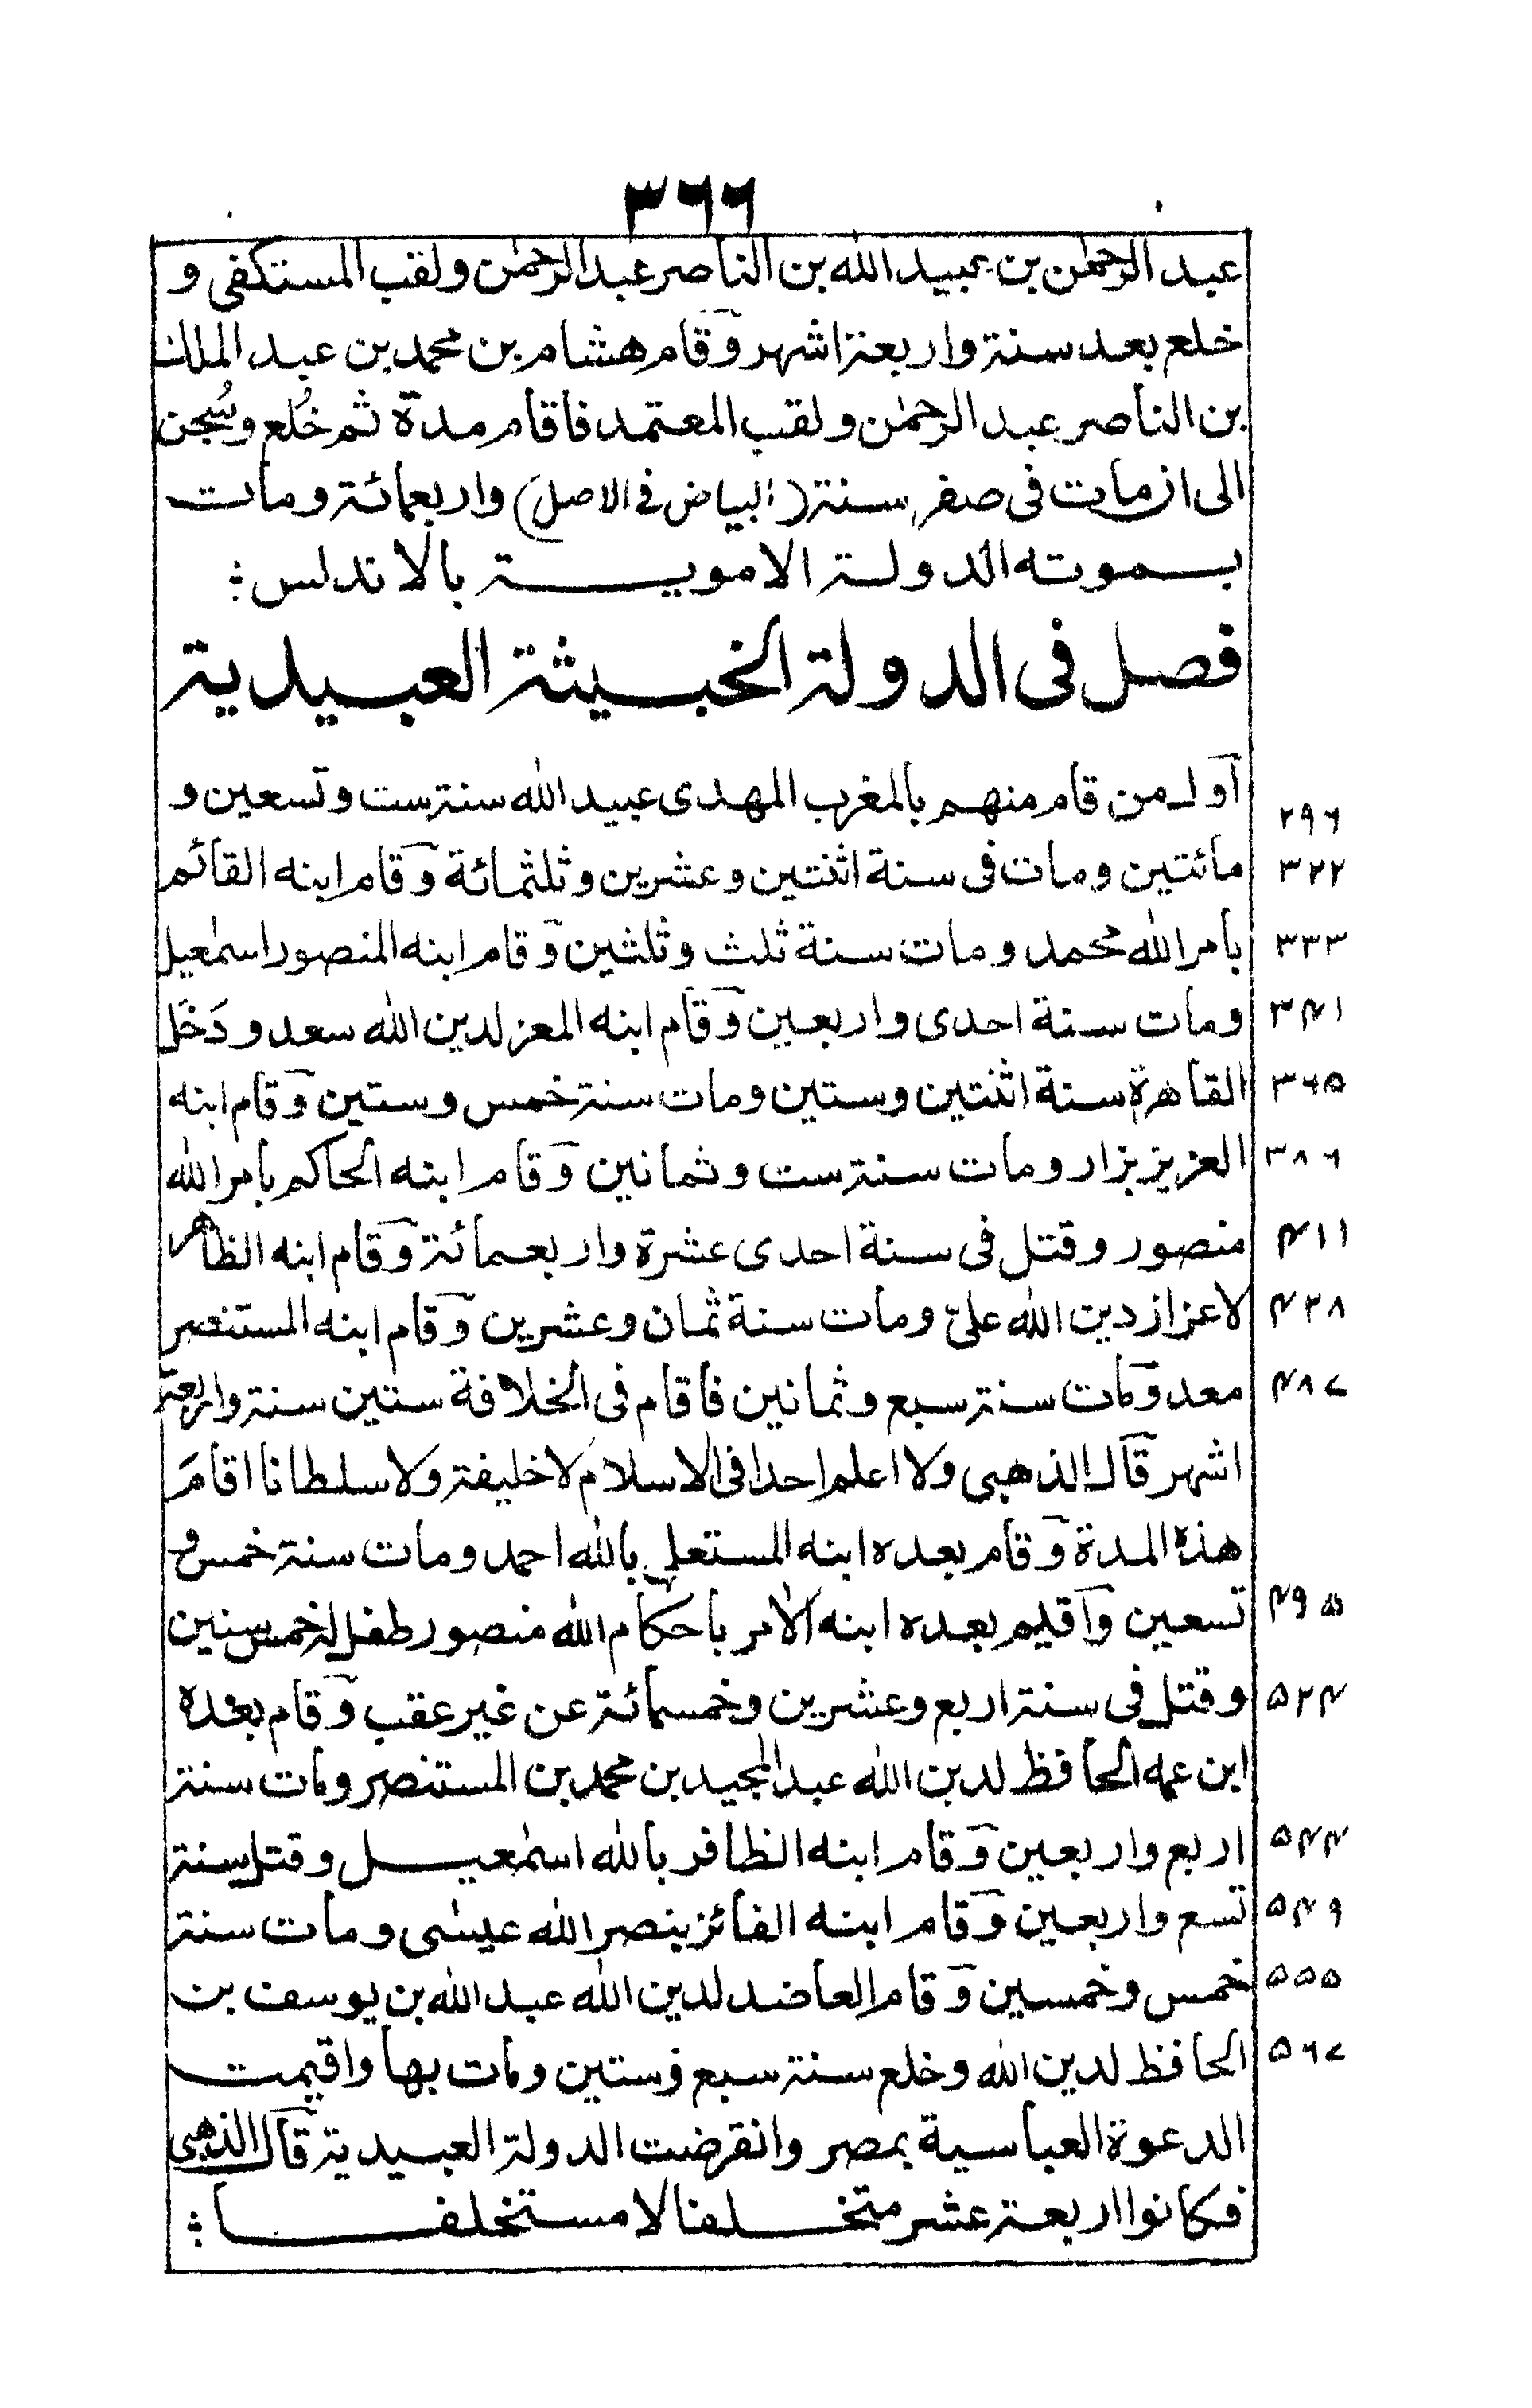 ٣٦٦
عبد الرحمٰن بن عبيد الله بن الناصر عبد الرحمٰن ولقب المستكفى و
خلع بعد سنة واربعة اشهر وقام هشام بن محمد بن عبد الملك
بن الناصر عبد الرحمٰن ولقب المعتمد فاقام مدة ثم خُلع وسُجن
الى ان مات فى صفر سنة (البياض فى الاصل) واربعمائة ومات
بموته الدولة الاموية بالاندلس ؞
فصل فى الدولة الخبيثة العبيدية
اول من قام منهم بالمغرب المهدى عبيد الله سنة ست وتسعين و
٢٩٦
مائتين ومات فى سنة اثنتين وعشرين وثلثمائة وقام ابنه القائم
٣٢٢
بأمر الله محمد ومات سنة ثلث وثلثين وقام ابنه المنصور اسمٰعيل
٣٣٣
ومات سنة احدى واربعين وقام ابنه المعز لدين الله سعد ودَخَل
٣٤١
القاهرة سنة اثنتين وستين ومات سنة خمس وستين وقام ابنه
٣٦٥
العزيز نزار ومات سنة ست وثمانين وقام ابنه الحاكم بأمر الله
٣٨٦
منصور وقتل فى سنة احدى عشرة واربعمائة وقام ابنه الظاهر
٤١١
لاعزاز دين الله علىّ ومات سنة ثمان وعشرين وقام ابنه المستنصر
٤٢٨
معد ومات سنة سبع وثمانين فاقام فى الخلافة ستين سنة واربعة
٤٨٧
اشهر قال الذهبى ولا اعلم احدا فى الاسلام لا خليفة ولا سلطانا اقامَ
هذه المدة وقام بعده ابنه المستعلى بالله احمد ومات سنة خمس و
تسعين واقيم بعده ابنه الاٰمر باحكام الله منصور طفل له خمس سنين
٤٩٥
وقتل فى سنة اربع وعشرين وخمسمائة عن غير عقب وقام بعده
٥٢٤
ابن عمه الحافظ لدين الله عبد المجيد بن محمد بن المستنصر ومات سنة
اربع واربعين وقام ابنه الظافر بالله اسمٰعيل وقتل سنة
٥٤٤
تسع واربعين وقام ابنه الفائز بنصر الله عيسٰى ومات سنة
٥٤٩
خمس وخمسين وقام العاضد لدين الله عبد الله بن يوسف بن
٥٥٥
الحافظ لدين الله وخلع سنة سبع وستين ومات بها واقيمت
٥٦٧
الدعوة العباسية بمصر وانقرضت الدولة العبيدية قال الذهبى
فكانوا اربعة عشر متخلفا لا مستخلفا ؞